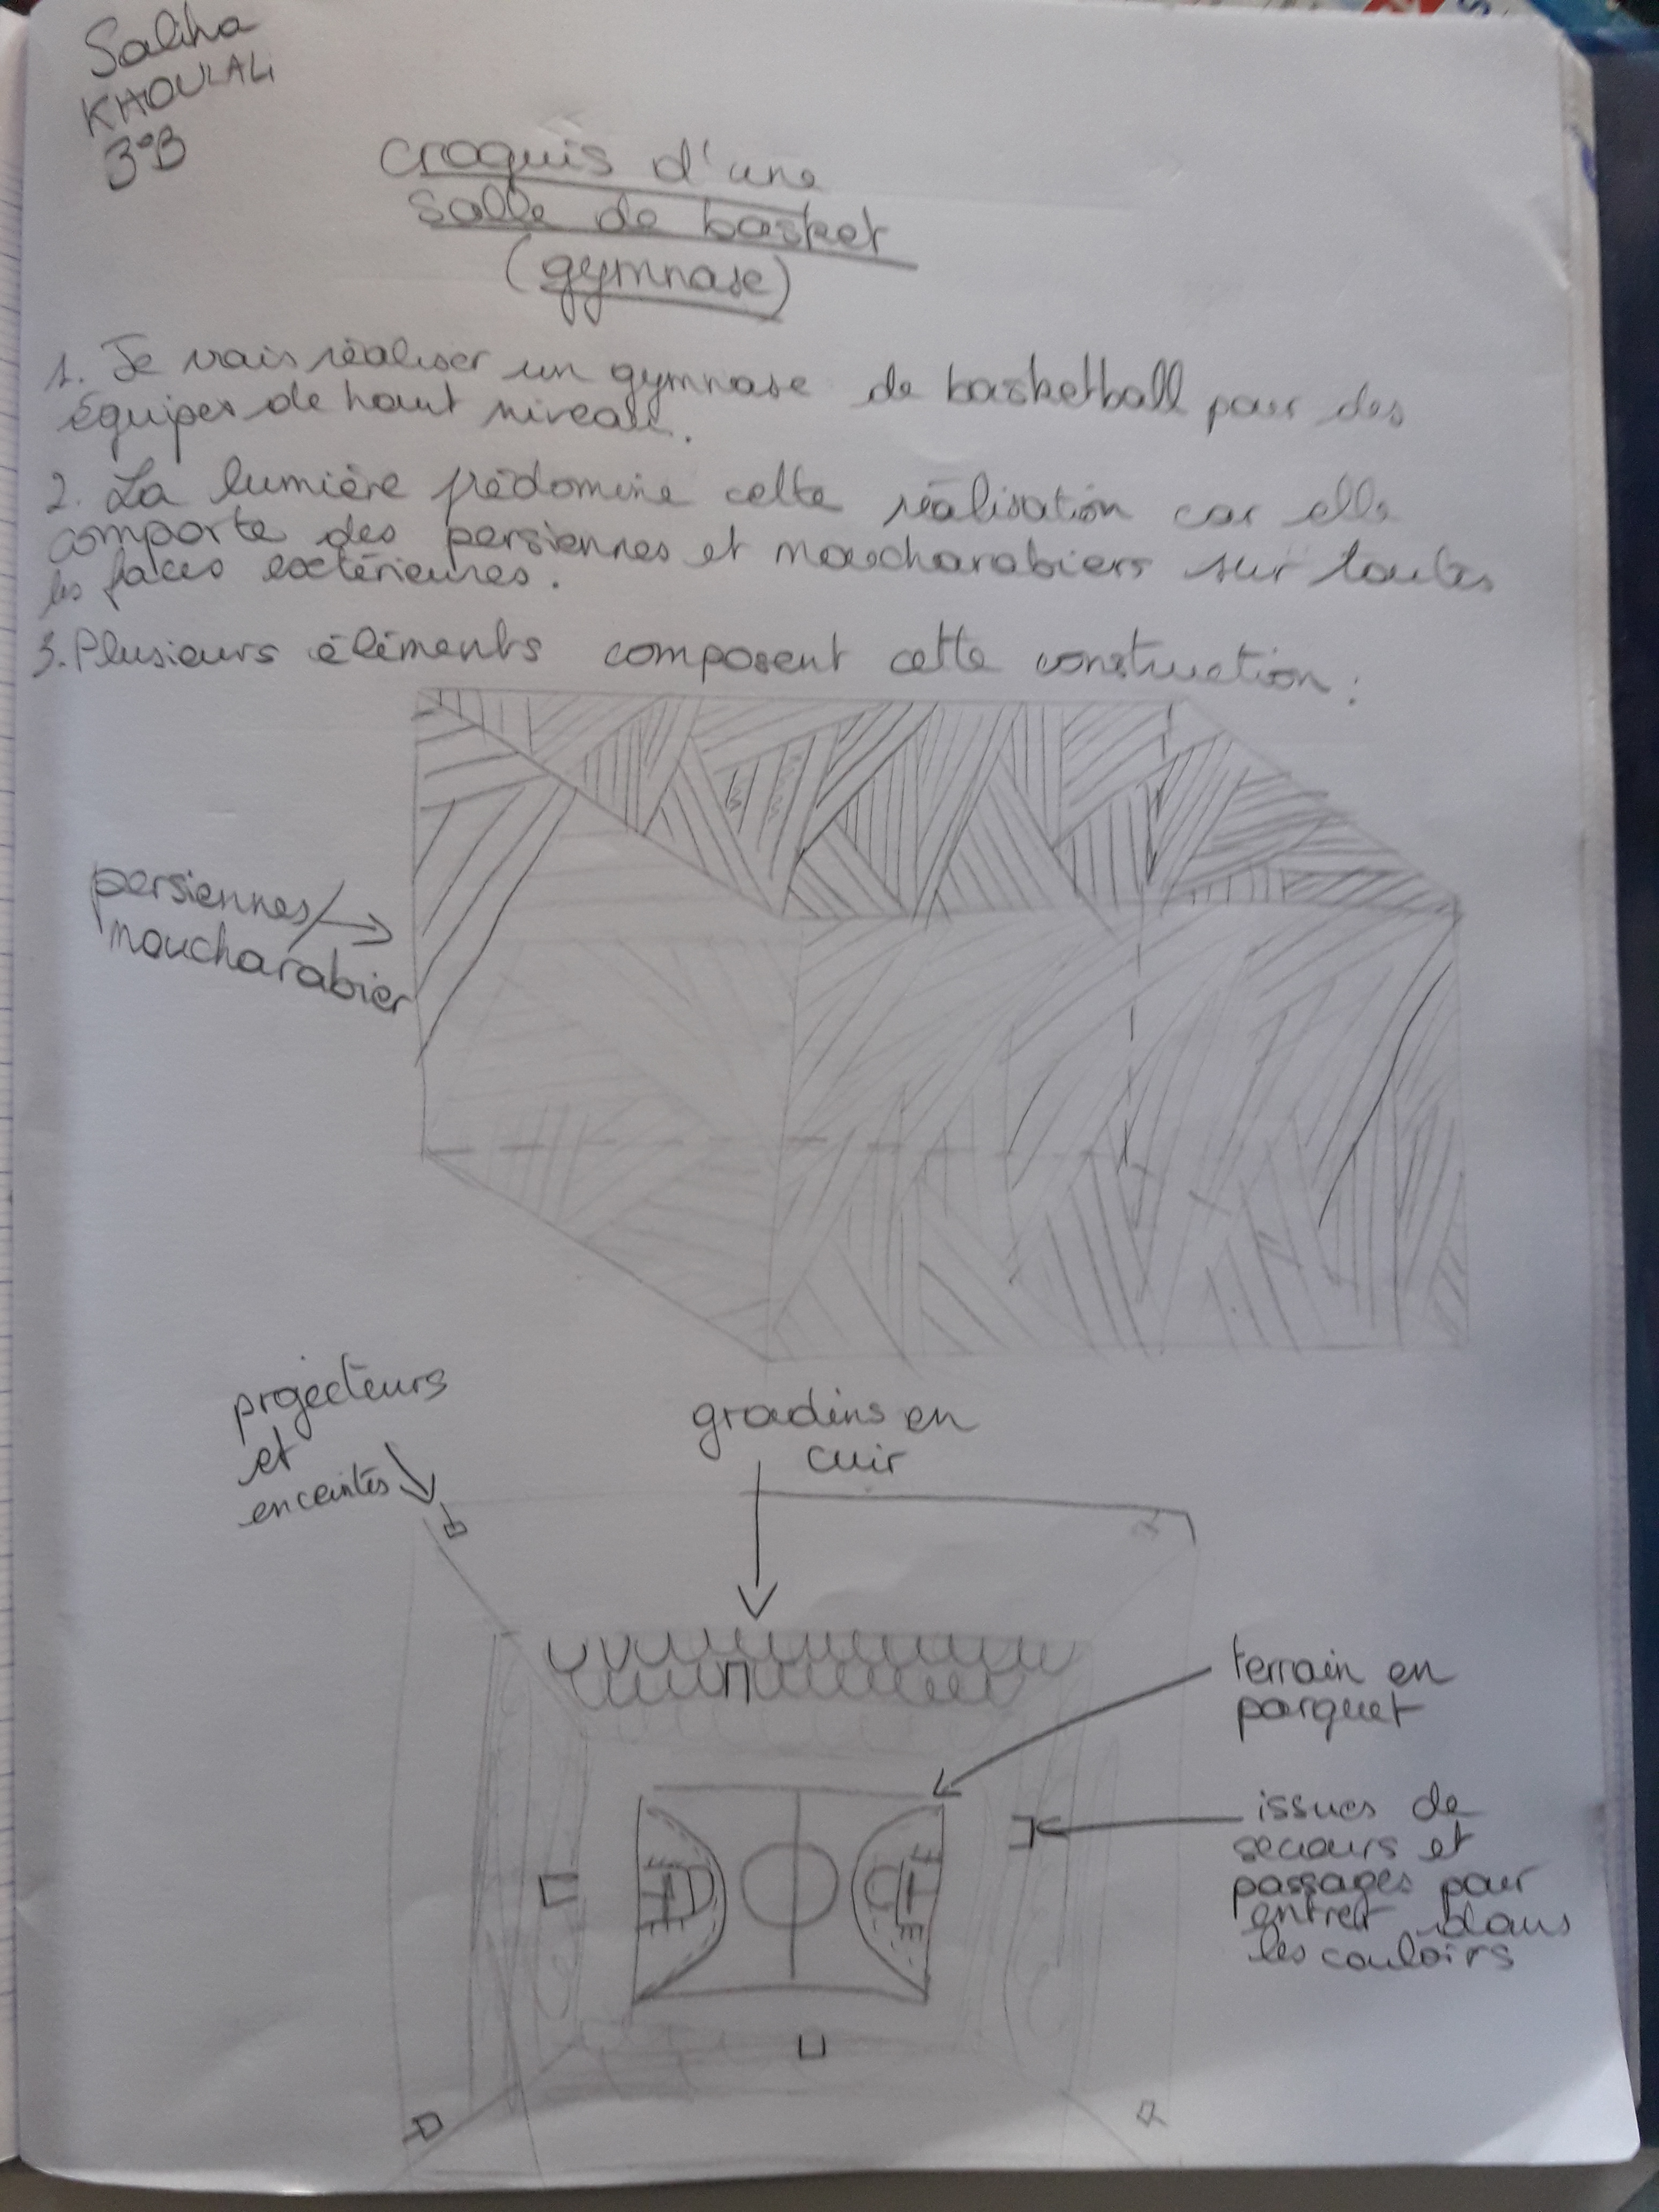 Saliha
KHOULALI
3°B
croquis d'une
salle de basket
(gymnase)
1. Je vais réaliser un gymnase de basketball pour des
équipes de haut niveau.
2. La lumière prédomine cette réalisation car elle
comporte des persiennes et moucharabiers sur toutes
les faces extérieures.
3. Plusieurs éléments composent cette construction :
persiennes/
moucharabier
projecteurs
et
enceintes
gradins en
cuir
terrain en
parquet
issues de
secours et
passages pour
entrer dans
les couloirs